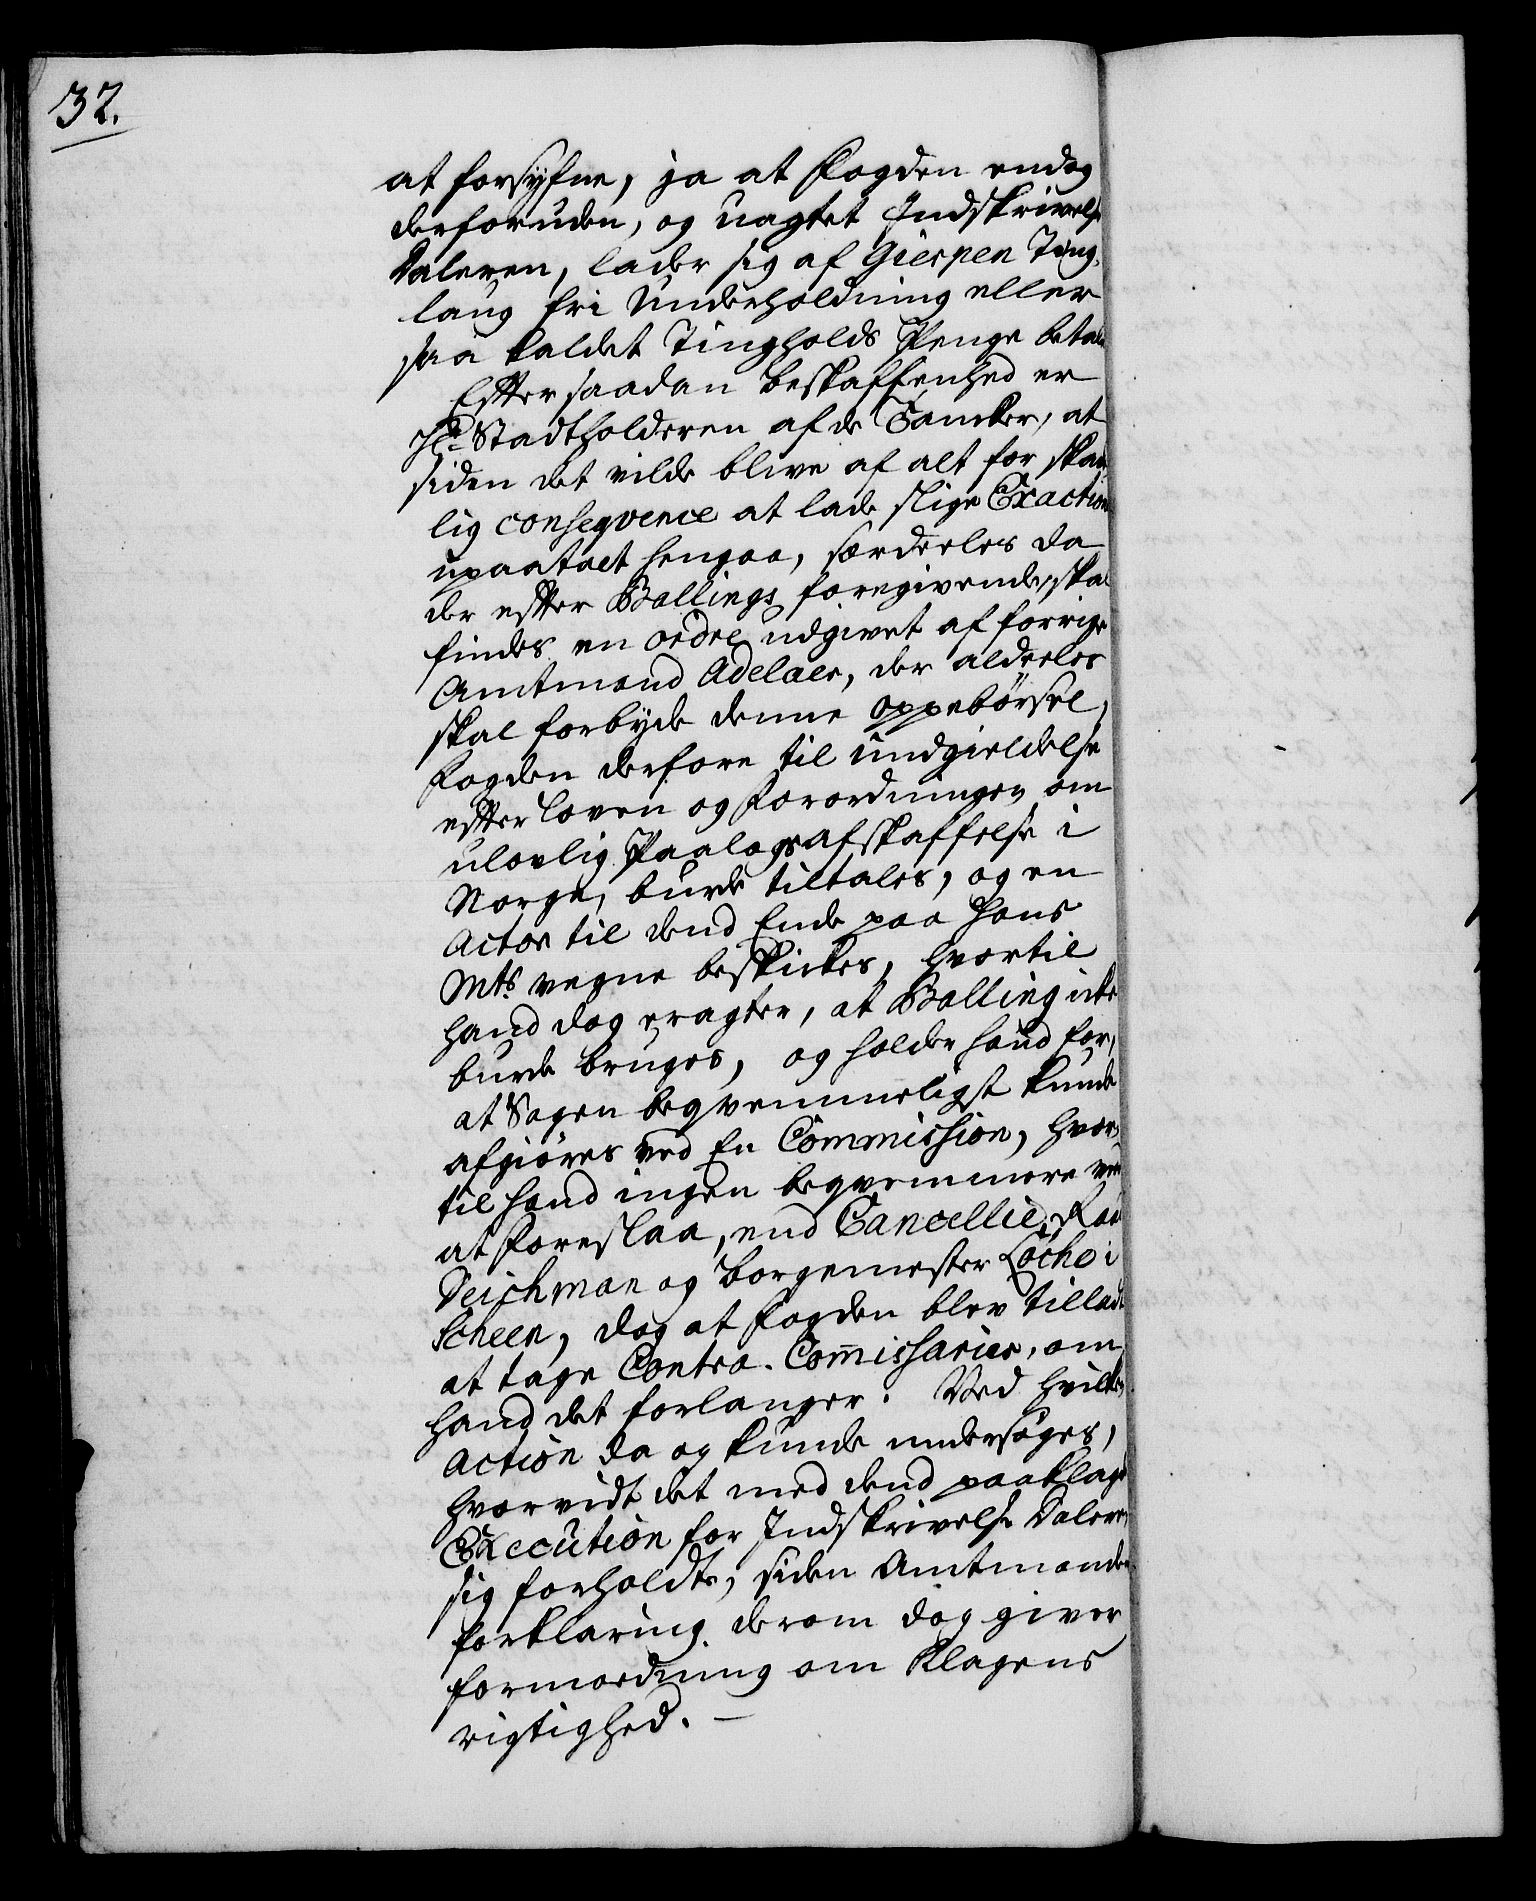 32.
at forsyfne, ja at Fogden endog
derforuden, og uagtet Indskrivelse
Daleren, lader sig af Gierpen Ting-
laug fri Underholdning eller
saa kaldet Tingholds Penge betale
Effter saadan beskaffenhed er
Hr. Stadtholderen af de Tancker, at
siden det vilde blive af alt for skad
lig conseqvence at lade slige Exaction
upaatalt hengaa, særdeeles da
der effter Ballings foregivende, skal
findes en ordre udgivet af forrige
Amtmand Adelaer, der aldeeles
skal forbyde denne oppebörsel,
Fogden derfore til undgieldelse
effter Loven og Forordningen om
ulovlig Paalægs afskaffelse i
Norge, burde tiltales, og en
Actor til dend Ende paa Hans
Mts. vegne beskickes, hvortil
hand dog eragter, at Balling icke
burde bruges, og holder hand for,
at Sagen beqvemmeligst kunde
afgiøres ved En Commission, hvor-
til hand ingen beqvemmere veed
at foreslaa, end Cancellie-Raad
Deichman og borgemester Coche i
Scheen, dog at Fogden blev tilladt
at tage Contra-Comissarier, om
hand det forlanger. Ved hvilken
Action da og kunde undersøges,
hvorvidt det med dend paaklagte
Execution for Indskrivelse Daleren
sig forholdte, siden Amtmandens
forklaring derom dog giver
formodning om Klagens
rigtighed. —